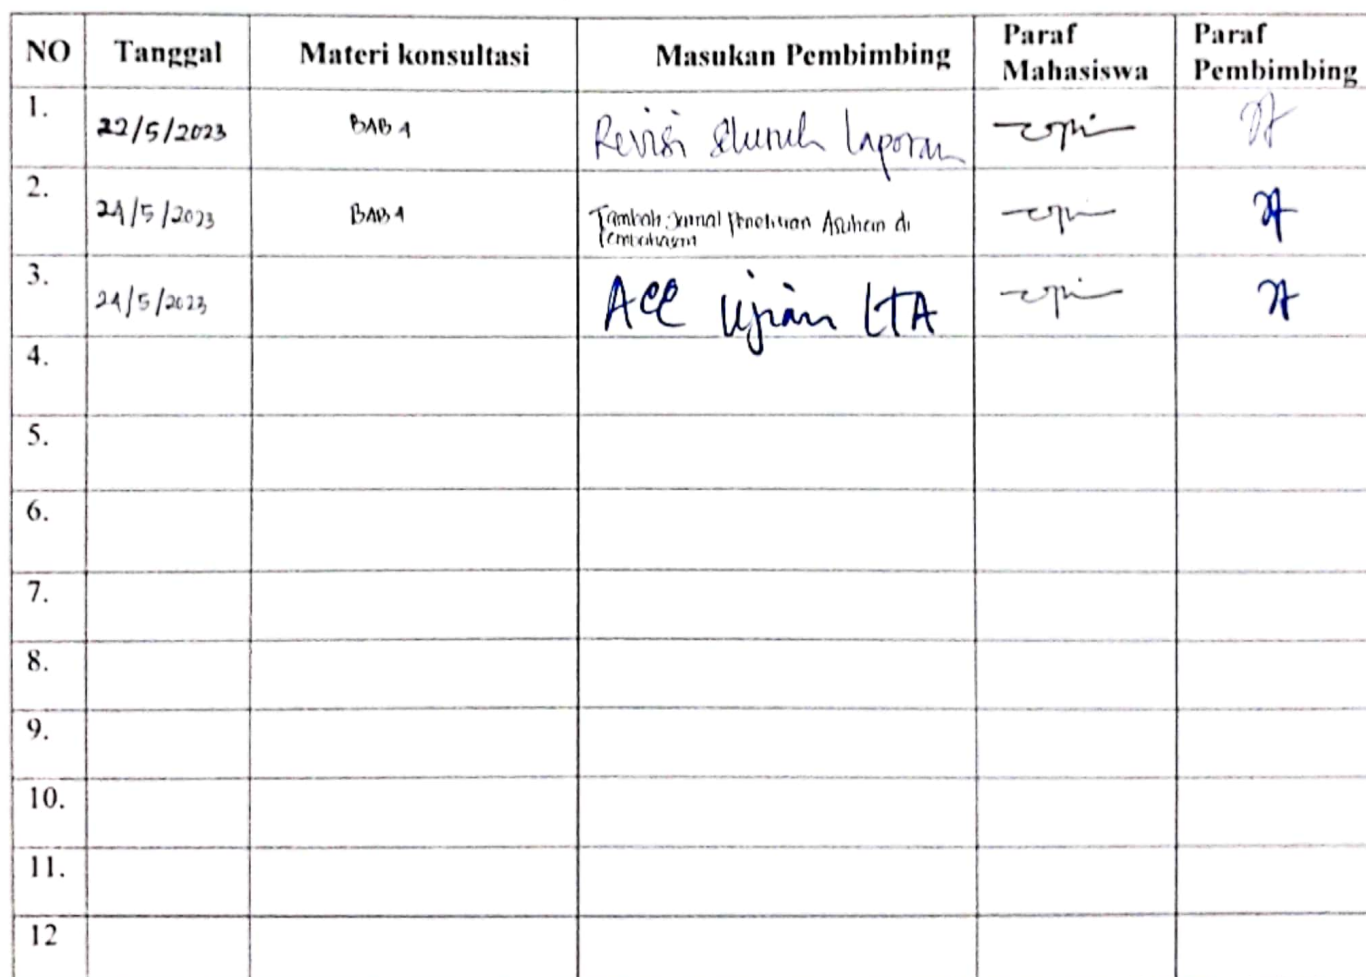 NO Tanggal Materi konsultasi Masukan Pembimbing Paraf Mahasiswa Paraf Pembimbing
1. 22/5/2023 BAB 4 Revisi Seluruh Laporan
2. 24/5/2023 BAB 4 Tambah Jurnal Penelitian Asuhan di
Pembahasan
3. 24/5/2023 ACC Ujian LTA
4.
5.
6.
7.
8.
9.
10.
11.
12